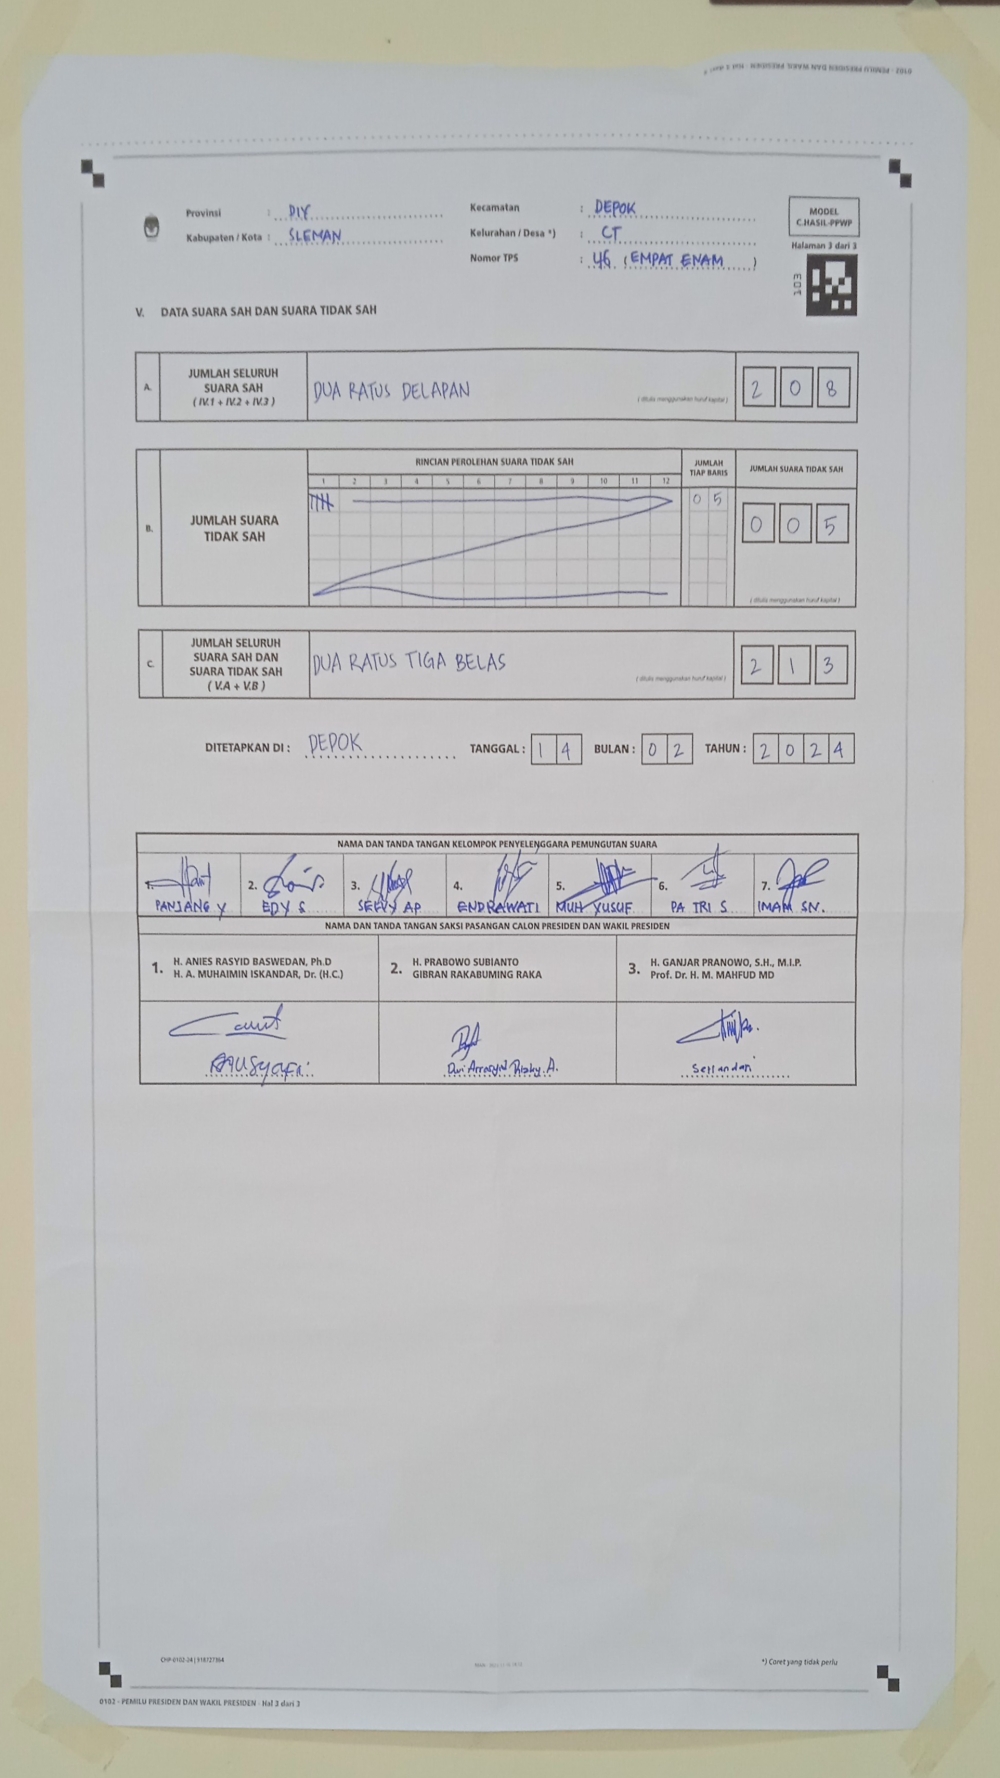 0102 - PEMILU PRESIDEN DAN WAKIL PRESIDEN - Hal 2 dari 3
Provinsi : DIY
Kabupaten / Kota : SLEMAN
Kecamatan : DEPOK
Kelurahan / Desa *) : CT
Nomor TPS : 46 (EMPAT ENAM)
MODEL
C.HASIL-PPWP
Halaman 3 dari 3
103
V. DATA SUARA SAH DAN SUARA TIDAK SAH
A. JUMLAH SELURUH SUARA SAH ( IV.1 + IV.2 + IV.3 )
DUA RATUS DELAPAN
( ditulis menggunakan huruf kapital )
2 0 8
B. JUMLAH SUARA TIDAK SAH
RINCIAN PEROLEHAN SUARA TIDAK SAH
1 2 3 4 5 6 7 8 9 10 11 12
JUMLAH TIAP BARIS
0 5
JUMLAH SUARA TIDAK SAH
0 0 5
( ditulis menggunakan huruf kapital )
C. JUMLAH SELURUH SUARA SAH DAN SUARA TIDAK SAH ( V.A + V.B )
DUA RATUS TIGA BELAS
( ditulis menggunakan huruf kapital )
2 1 3
DITETAPKAN DI : DEPOK TANGGAL : 1 4 BULAN : 0 2 TAHUN : 2 0 2 4
NAMA DAN TANDA TANGAN KELOMPOK PENYELENGGARA PEMUNGUTAN SUARA
1. PANJANG Y
2. EDY S
3. AP
4. ENDRAWATI
5. MUH YUSUF
6. PA TRI S
7. IMAM SN.
NAMA DAN TANDA TANGAN SAKSI PASANGAN CALON PRESIDEN DAN WAKIL PRESIDEN
1. H. ANIES RASYID BASWEDAN, Ph.D
H. A. MUHAIMIN ISKANDAR, Dr. (H.C.)
2. H. PRABOWO SUBIANTO
GIBRAN RAKABUMING RAKA
3. H. GANJAR PRANOWO, S.H., M.I.P.
Prof. Dr. H. M. MAHFUD MD
*) Coret yang tidak perlu
0102 - PEMILU PRESIDEN DAN WAKIL PRESIDEN - Hal 3 dari 3